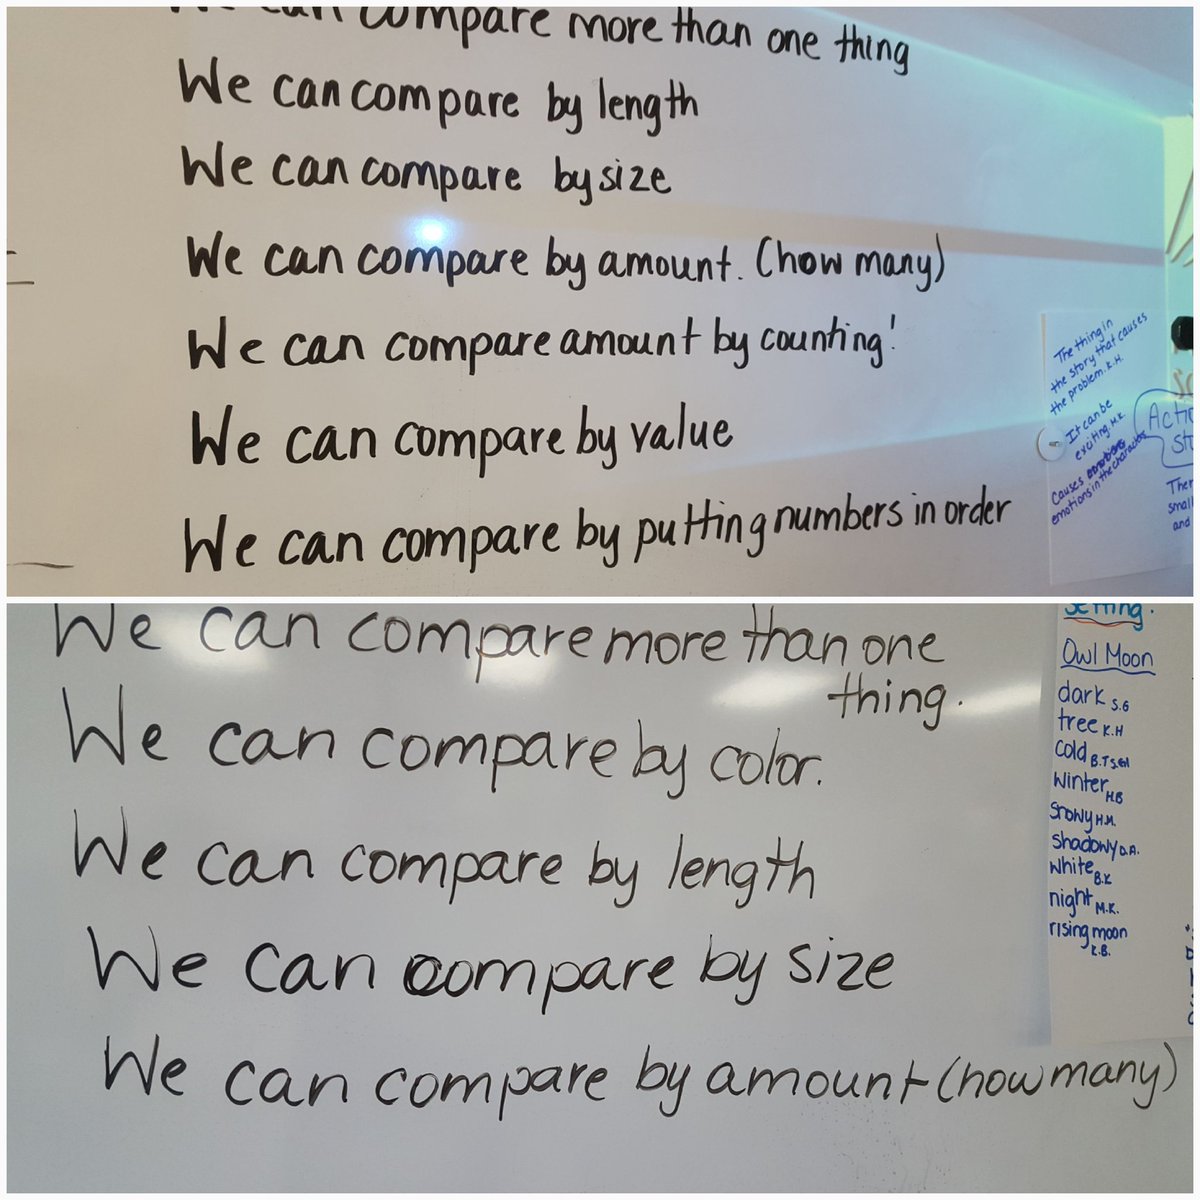 We can compare more than one thing
We can compare by length
We can compare by size
We can compare by amount. (how many)
We can compare amount by counting!
We can compare by value
We can compare by putting numbers in order
The thing in
the story that causes
the problem. K.H.
It can be
exciting. M.K.
Causes
emotions in the characters
Ther
small
and
We can compare more than one
thing.
We can compare by color.
We can compare by length
We can compare by size
We can compare by amount (how many)
Setting.
Owl Moon
dark S.G
tree K.H
cold B.T
winter H.B
snowy H.M.
shadowy D.A.
white B.K
night M.K.
rising moon
K.B.